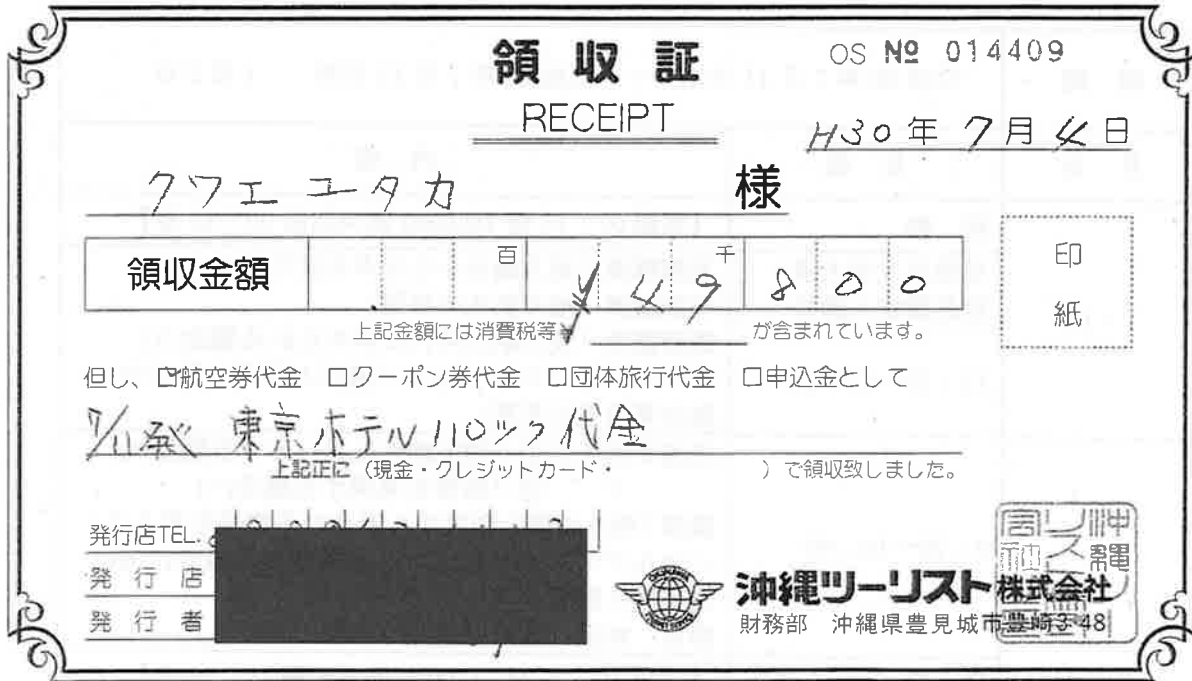 領収証
OS № 014409
RECEIPT
H30年7月4日
クワエユタカ 様
領収金額 百 千 ¥49800
印紙
上記金額には消費税等¥ が含まれています。
但し、☑航空券代金 口クーポン券代金 口団体旅行代金 口申込金として
7/11発 東京ホテルパック代金
上記正に(現金・クレジットカード・ )で領収致しました。
発行店TEL.
発行店
発行者
沖縄ツーリスト株式会社
財務部 沖縄県豊見城市豊崎3-48